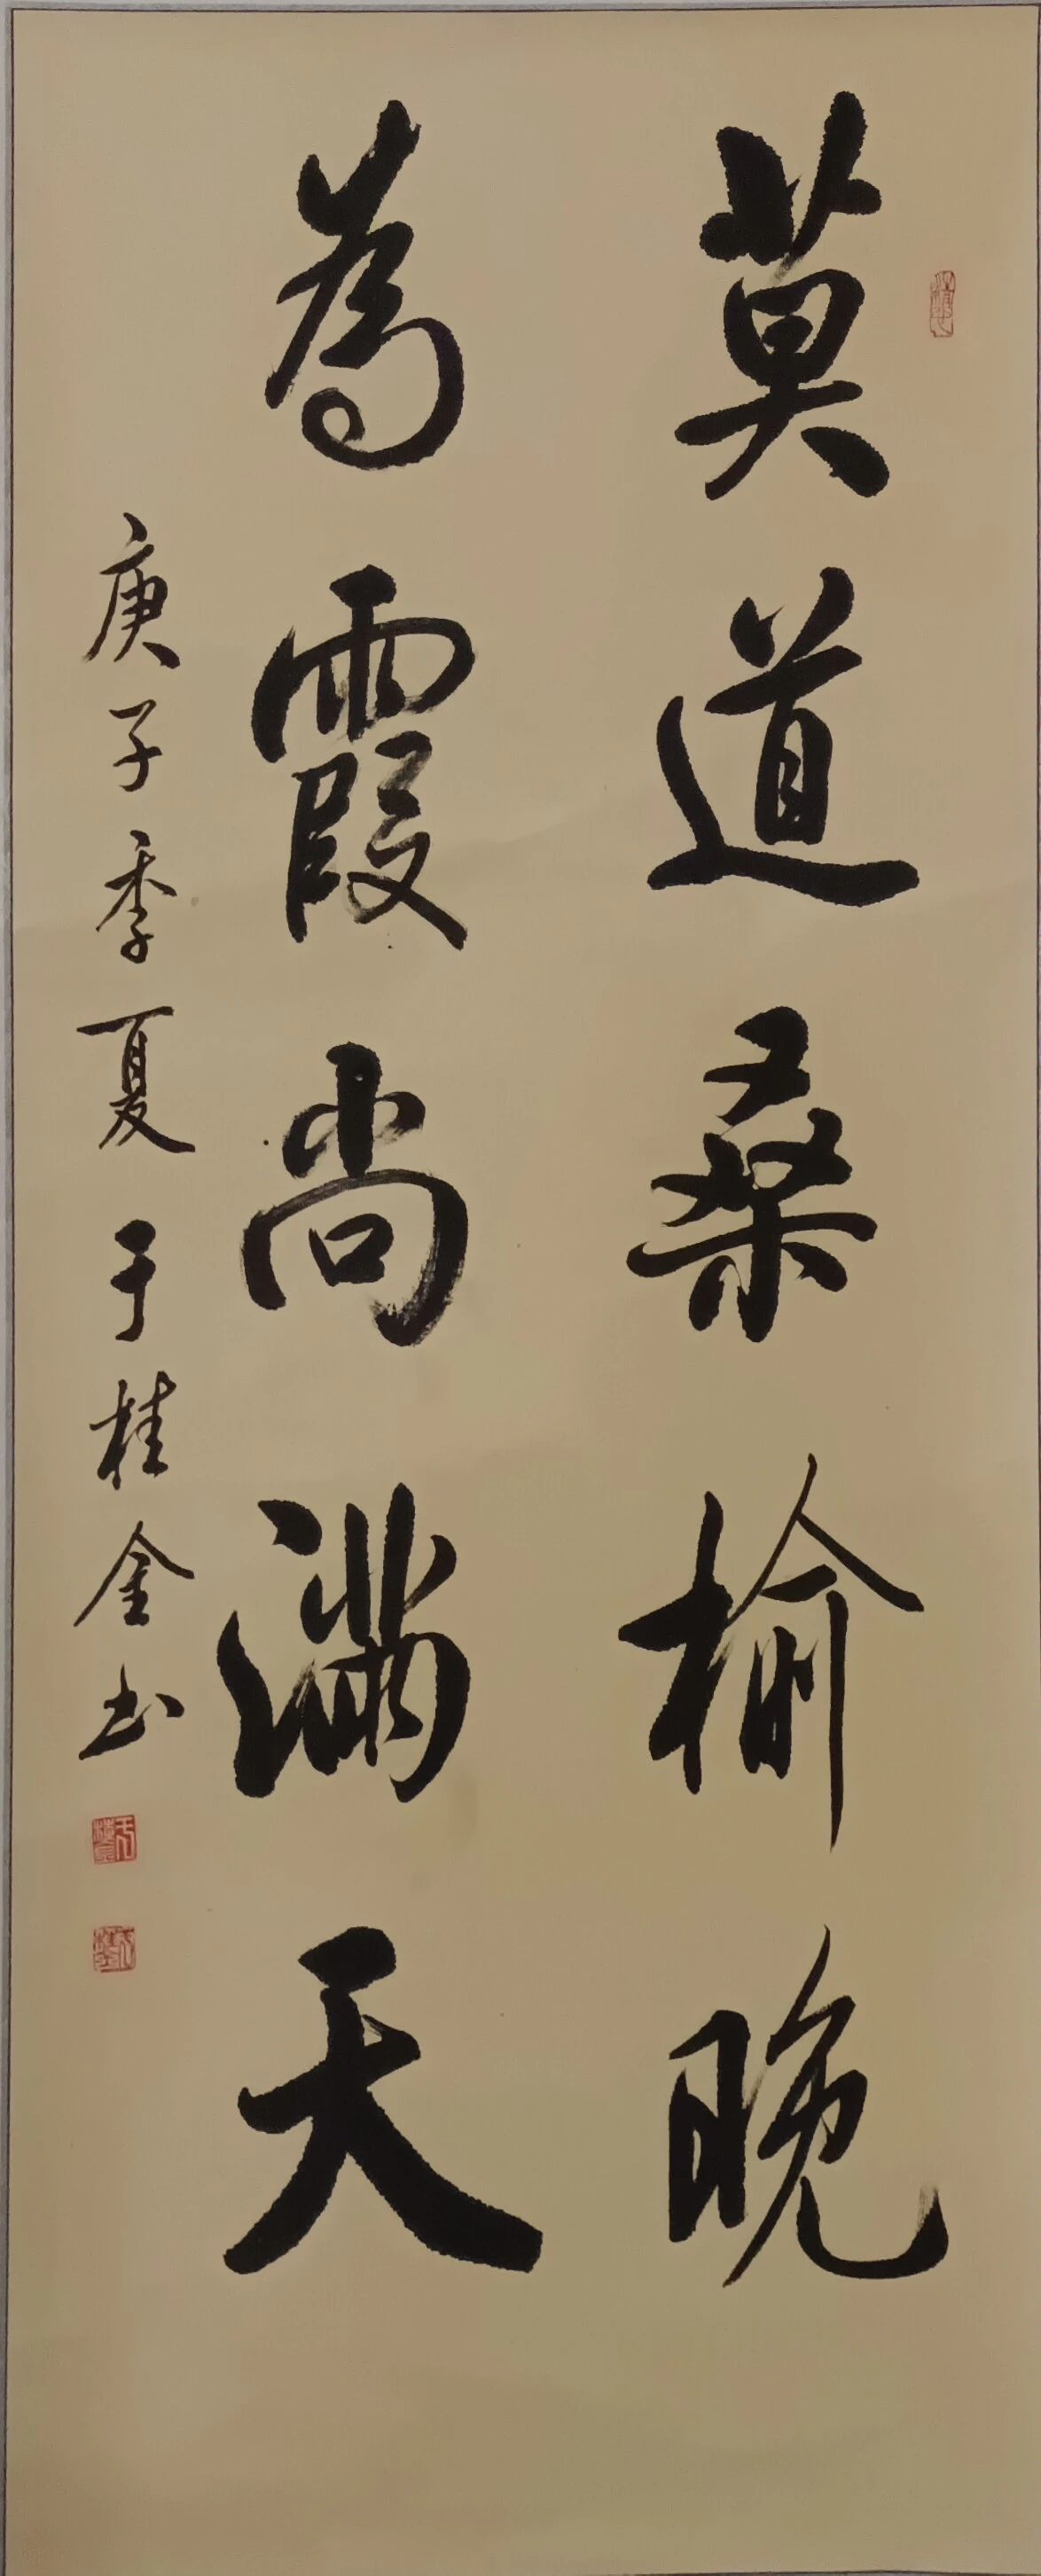 莫道桑榆晚
為霞尚滿天
庚子季夏于桂金书